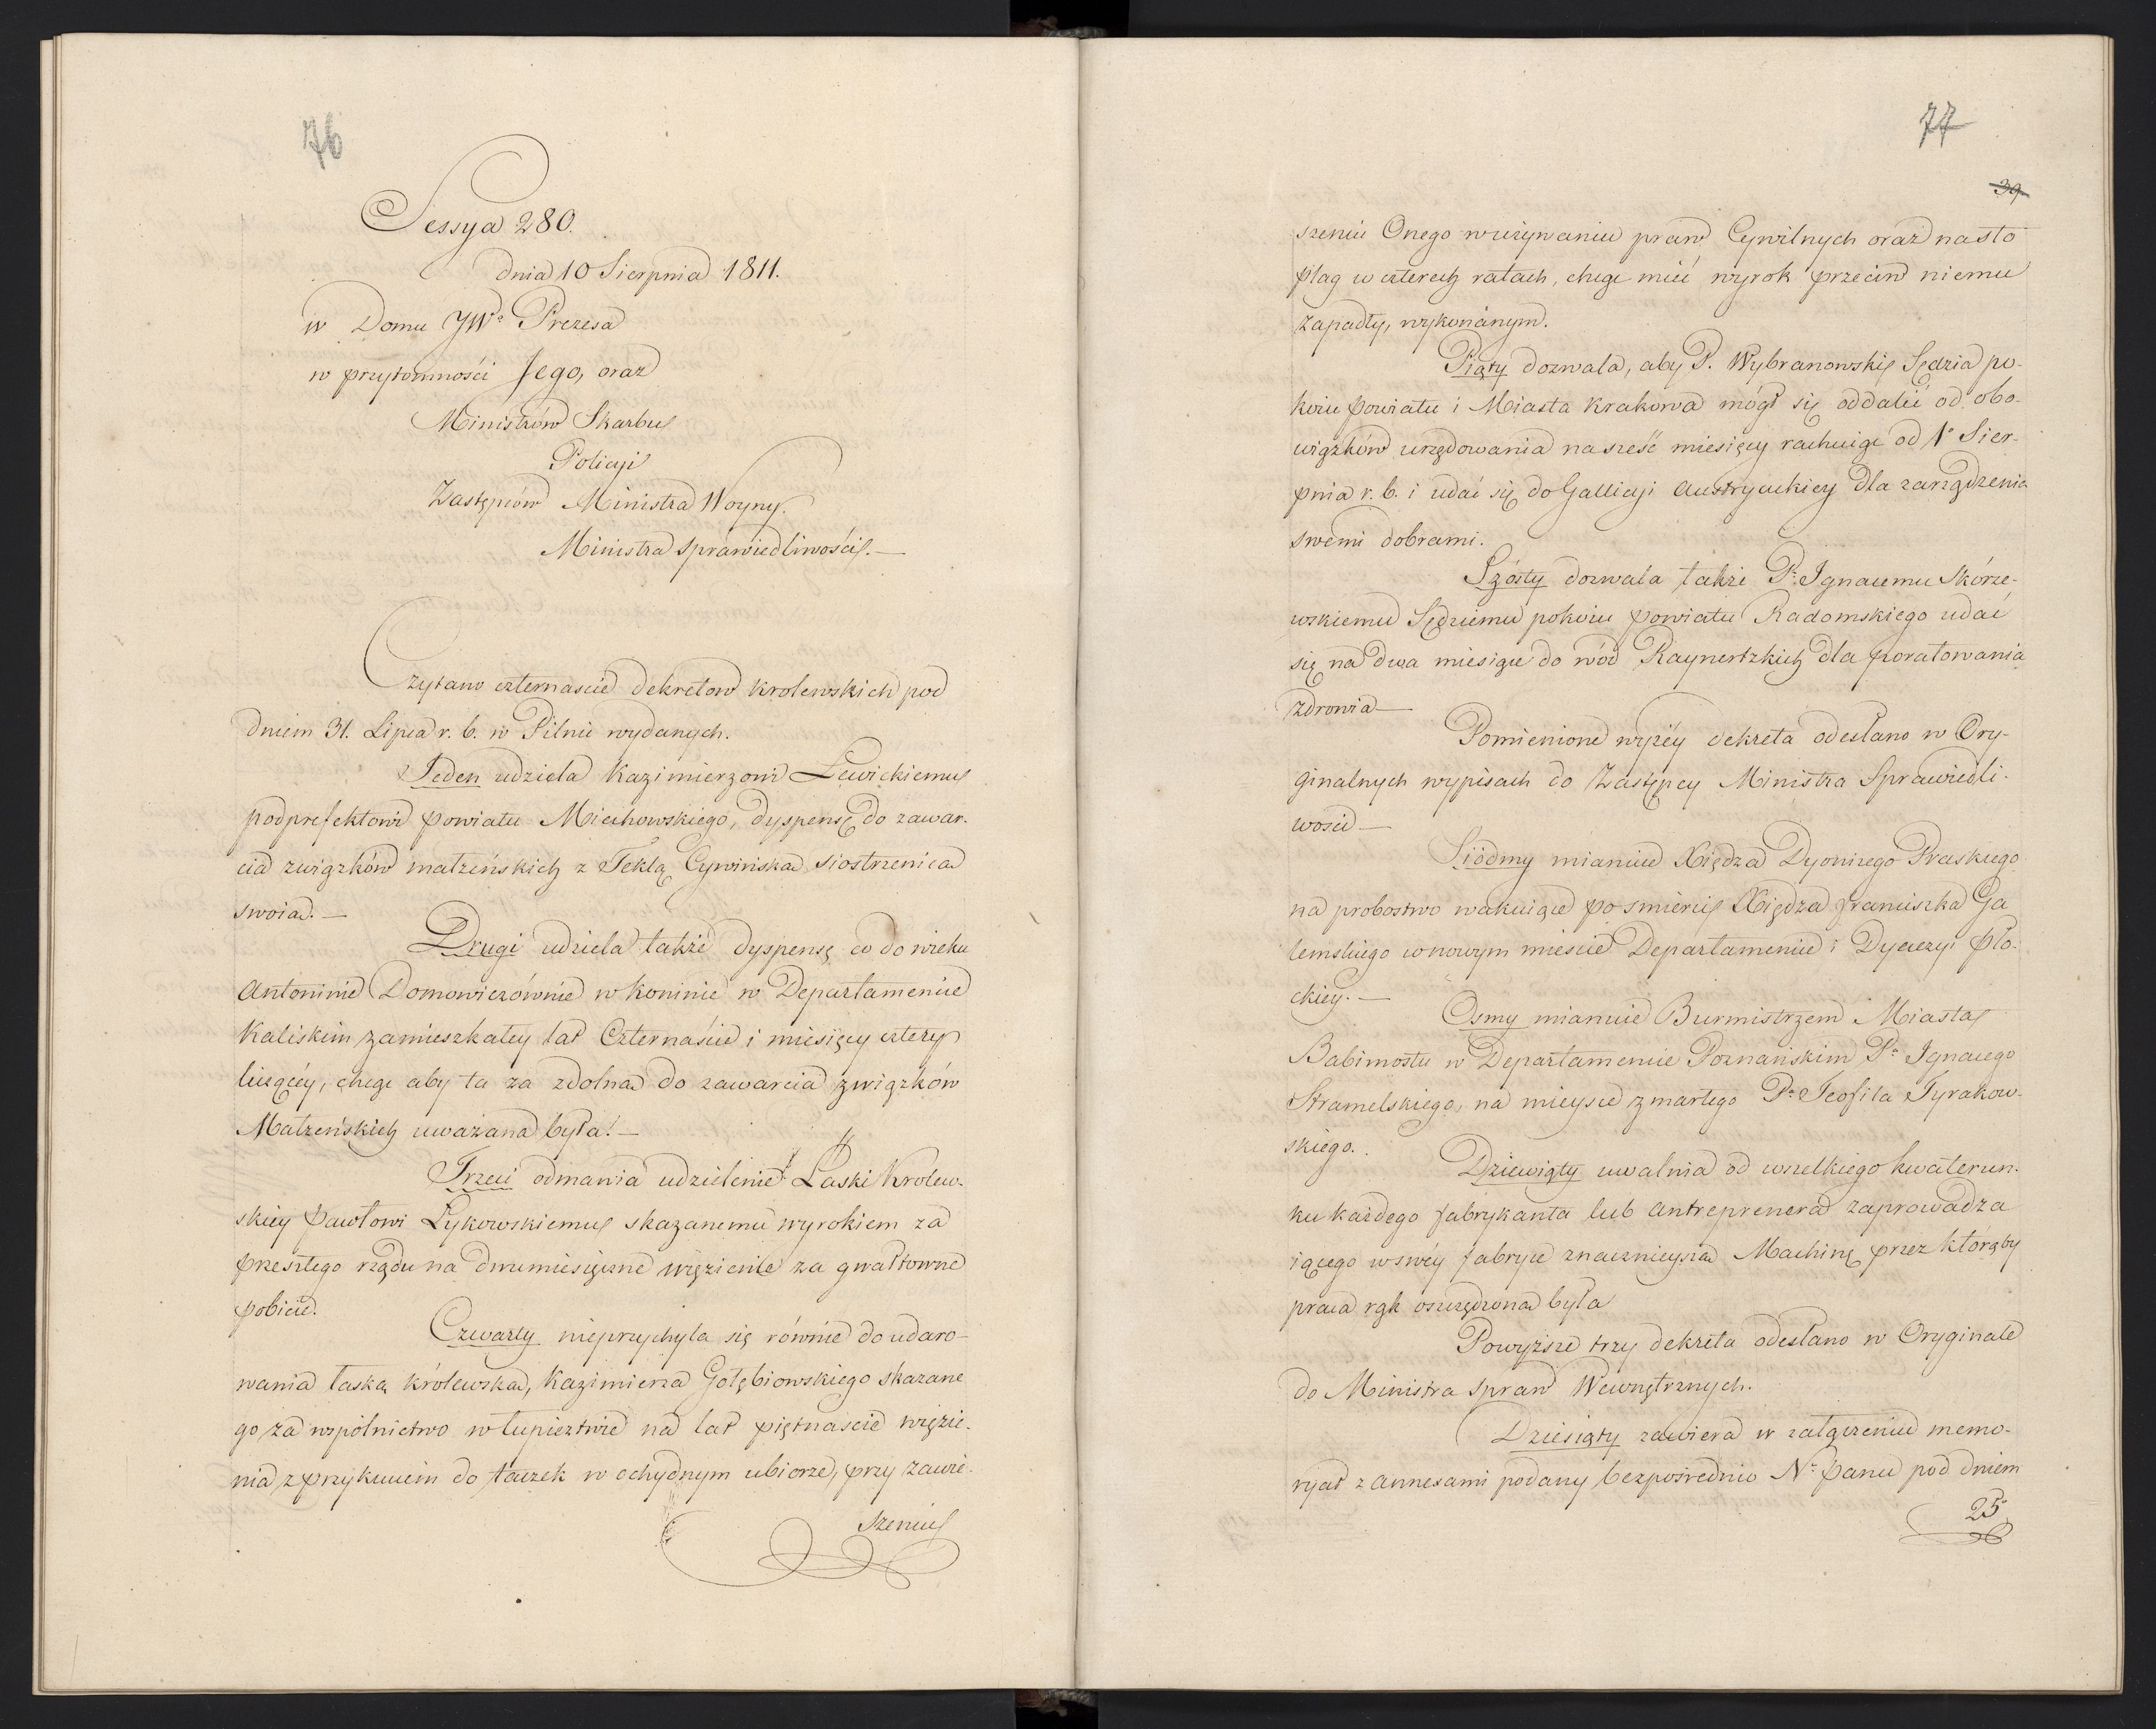 76
Sessya 280.
dnia 10 Sierpnia 1811.
w Domu JWo Prezesa
w przytomności Jego, oraz
Ministrów Skarbu
Policyi
Zastępców Ministra Woyny.
Ministra Sprawiedliwości. —
Czytano czternascie dekretow krolewskich pod
dniem 31. Lipca r. b. w Pilnie wydanych.
Jeden udziela Kazimierzowi Lewickiemu
podprefektowi powiatu Miechowskiego, dyspensę do zawar-
cia związków małżeńskich z Teklą Cywińska siostrzenica
swoia. —
Drugi udziela także dyspensę co do wieku
Antoninie Domowiczównie w Koninie w Departamencie
Kaliskim zamieszkałey lat Czternaście i miesięcy cztery
liczącéy, chcąc aby ta za zdolna do zawarcia związków
Małżeńskich uważana była. —
Trzeci odmawia udzielenie Łaski Krolew-
skiey Pawłowi Łykowskiemu skazanemu wyrokiem za
przeszłego rządu na dwumiesięczne więzienie za gwałtowne
pobicie.
Czwarty nieprzychyla się równie do udaro-
wania łaską królewską, Kazimierza Gołębiowskiego skazane
go za wspólnictwo w łupieztwie na lat piętnascie więzie-
nia z przykuciem do taczek w ochydnym ubiorze, przy zawie-
szeniu
77
39
szeniu Onego w używaniu praw Cywilnych oraz na sto
plag w czterech ratach, chcąc mieć wyrok przeciw niemu
zapadły, wykonanym.
Piąty dozwala, aby P. Wybranowski Sędzia po-
koiu powiatu i Miasta Krakowa mógł się oddalić od obo-
wiązków urzędowania na sześć miesięcy rachuiąc od 1o Sier-
pnia r. b. i udać się do Gallicyi Austryackiey dla zarządzenia
swemi dobrami.
Szósty dozwala także Po Ignacemu Skórze-
wskiemu Sędziemu pokoiu powiatu Radomskiego udać
się na dwa miesiące do wód Raynertzkich dla poratowania
zdrowia —
Pomienione wyżéy dekreta odesłano w Ory-
ginalnych wypisach do Zastępcy Ministra Sprawiedli-
wości —
Siódmy mianuie Xiędza Dyonizego Praskiego
na probostwo wakuiące po smierci Xiędza Franciszka Ga
lemskiego w nowym mieście Departamencie i Dyecezyi Pło-
ckiey. —
Osmy mianuie Burmistrzem Miasta
Babimostu w Departamencie Poznańskim Po Ignacego
Stramelskiego, na mieysce zmarłego Po Teofila Tyrakow-
skiego.
Dziewiąty uwalnia od wszelkiego kwaterun-
ku każdego fabrykanta lub antreprenera zaprowadza
iącego w swéy fabryce znacznieyszą Machinę przez którąby
praca rąk oszczędzona była
Powyższe trzy dekreta odesłano w Oryginale
do Ministra Spraw Wewnętrznych.
Dziesiąty zawiera w załączeniu memo-
ryał z annexami podany bezpośrednio No Panu pod dniem
25o